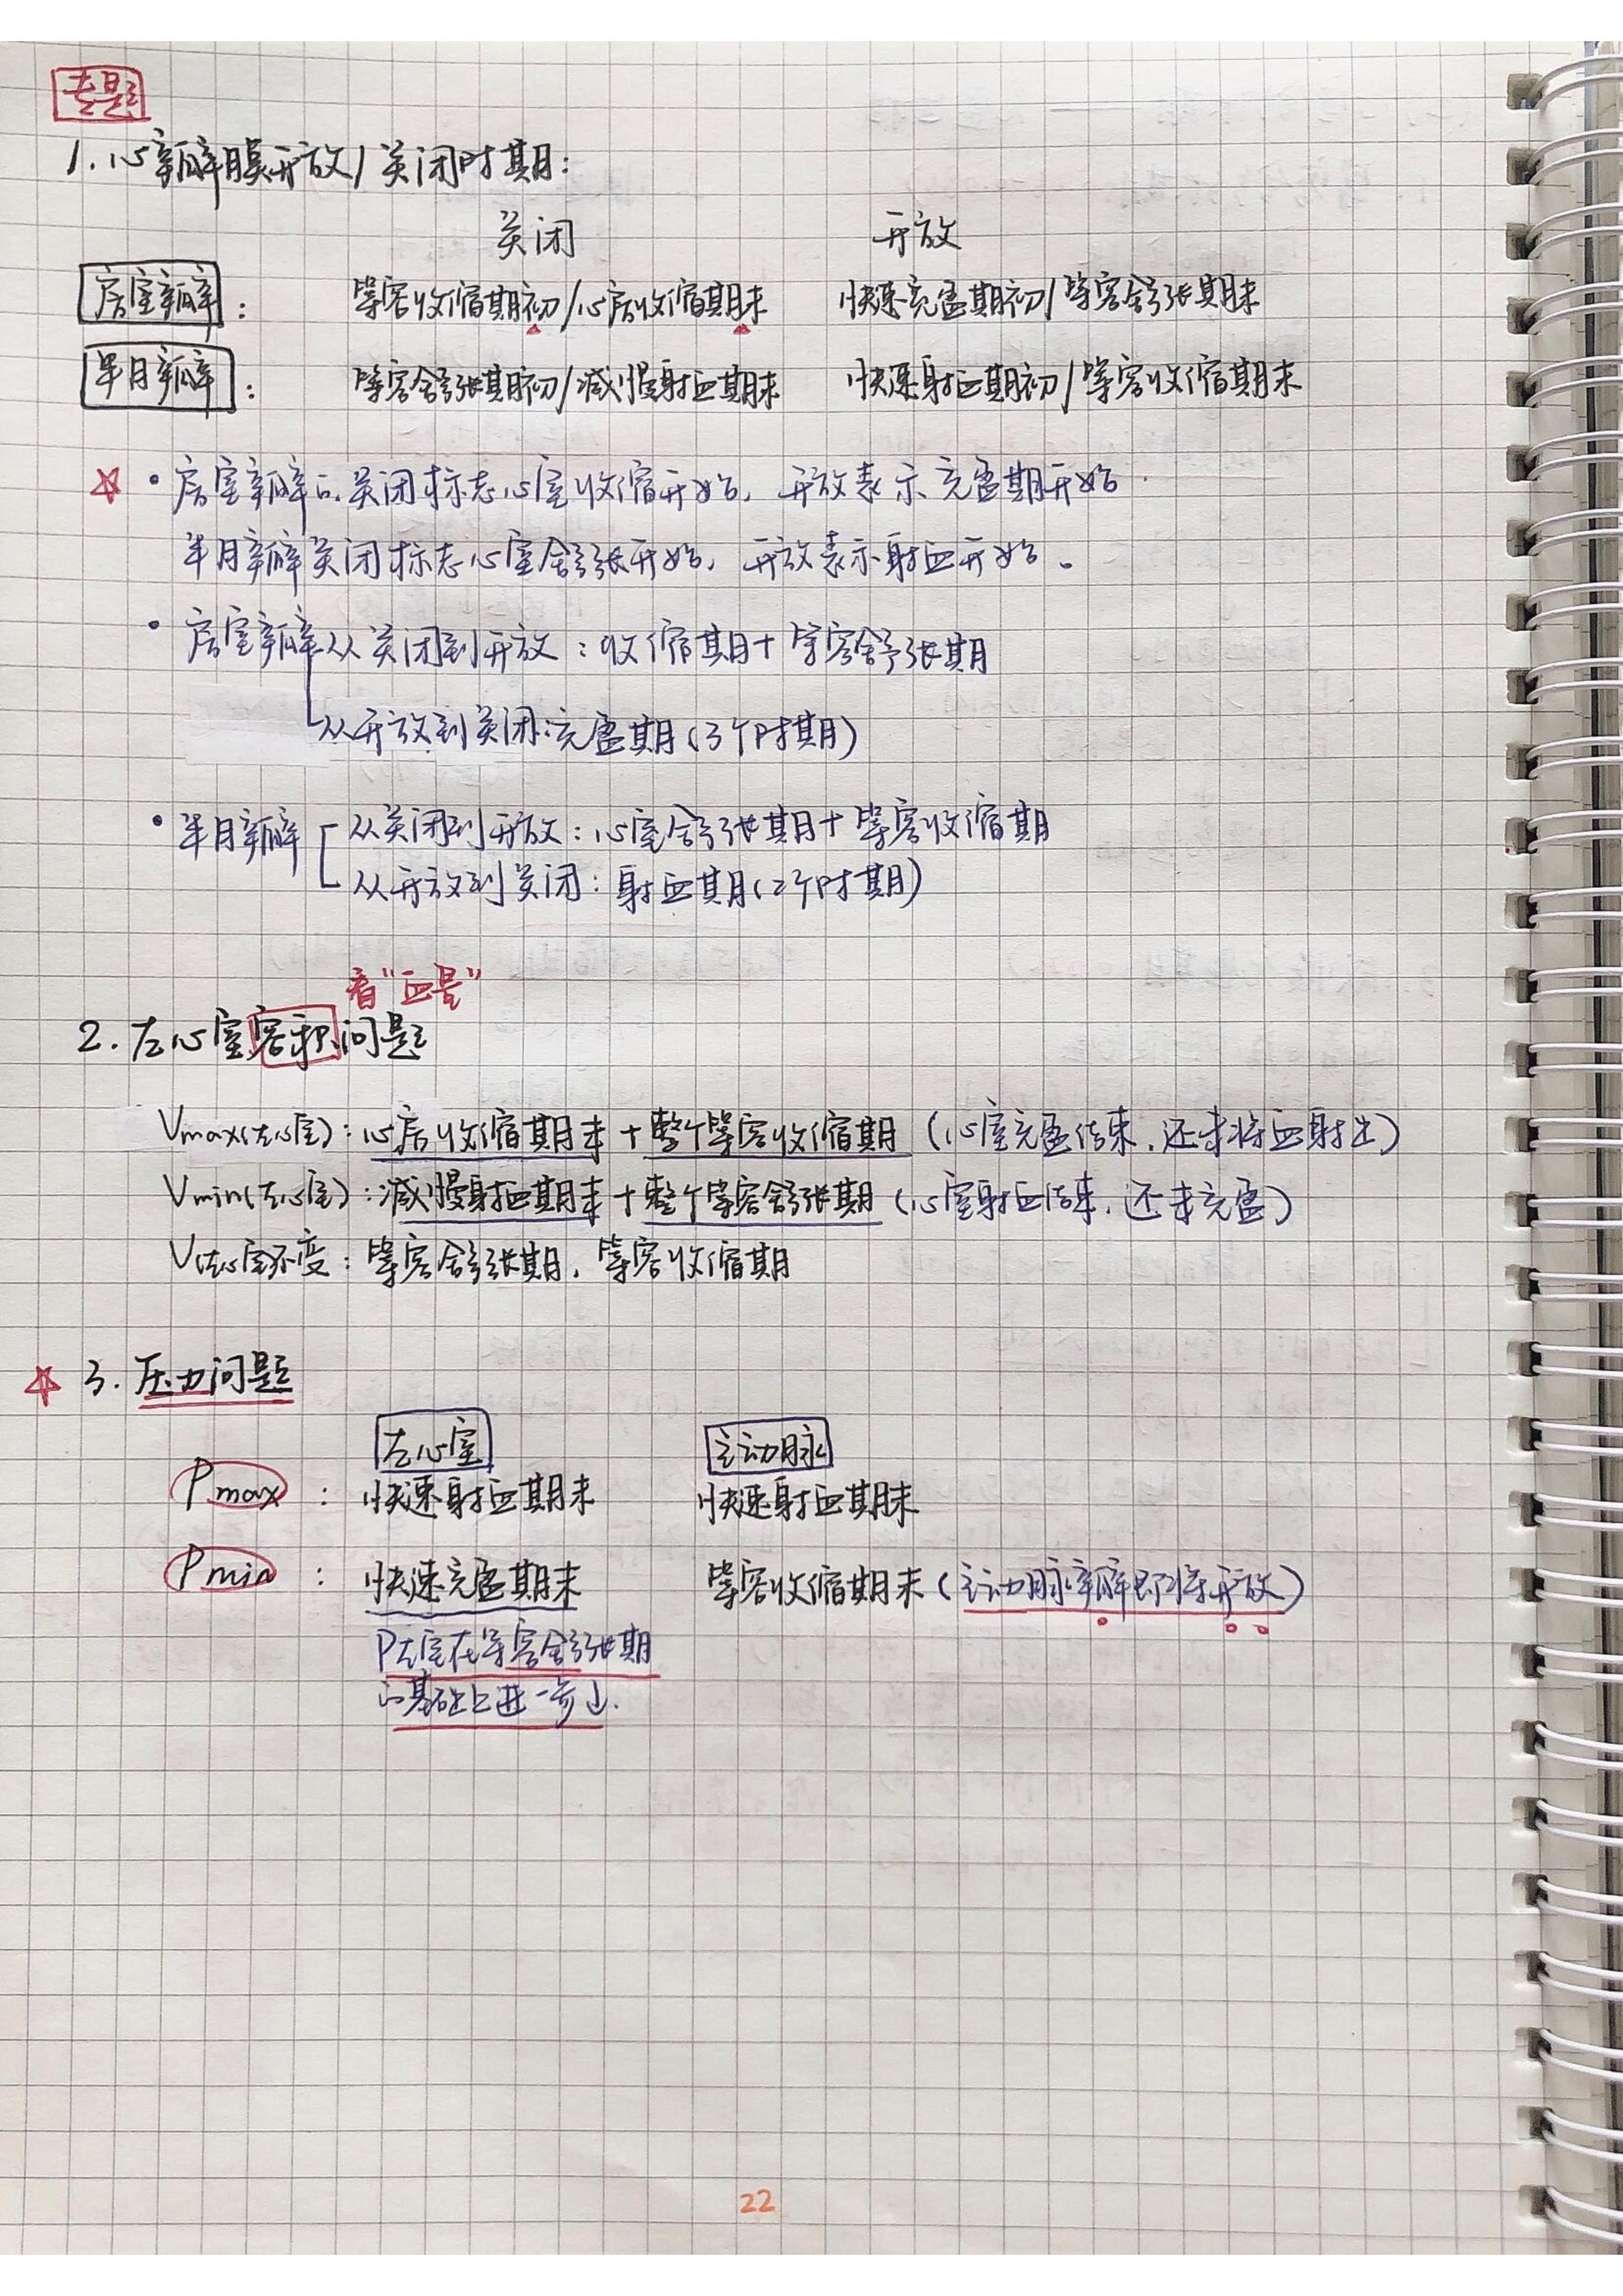 专题
1. 心瓣膜开放/关闭时期:
关闭 开放
房室瓣: 等容收缩期初/心房收缩期末 快速充盈期初/等容舒张期末
半月瓣: 等容舒张期初/减慢射血期末 快速射血期初/等容收缩期末
☆ • 房室瓣的关闭标志心室收缩开始, 开放表示充盈期开始
半月瓣关闭标志心室舒张开始, 开放表示射血开始。
• 房室瓣从关闭到开放: 收缩期+等容舒张期
从开放到关闭: 充盈期(3个时期)
• 半月瓣 从关闭到开放: 心室舒张期+等容收缩期
从开放到关闭: 射血期(2个时期)
看“血量”
2. 左心室容积问题
Vmax(左心室): 心房收缩期末+整个等容收缩期 (心室充盈结束, 还未将血射出)
Vmin(左心室): 减慢射血期末+整个等容舒张期 (心室射血结束, 还未充盈)
V左心室不变: 等容舒张期, 等容收缩期
☆ 3. 压力问题
左心室 主动脉
Pmax: 快速射血期末 快速射血期末
Pmin: 快速充盈期末 等容收缩期末(主动脉瓣即将开放)
P左室在等容舒张期
的基础上进一步↓.
22